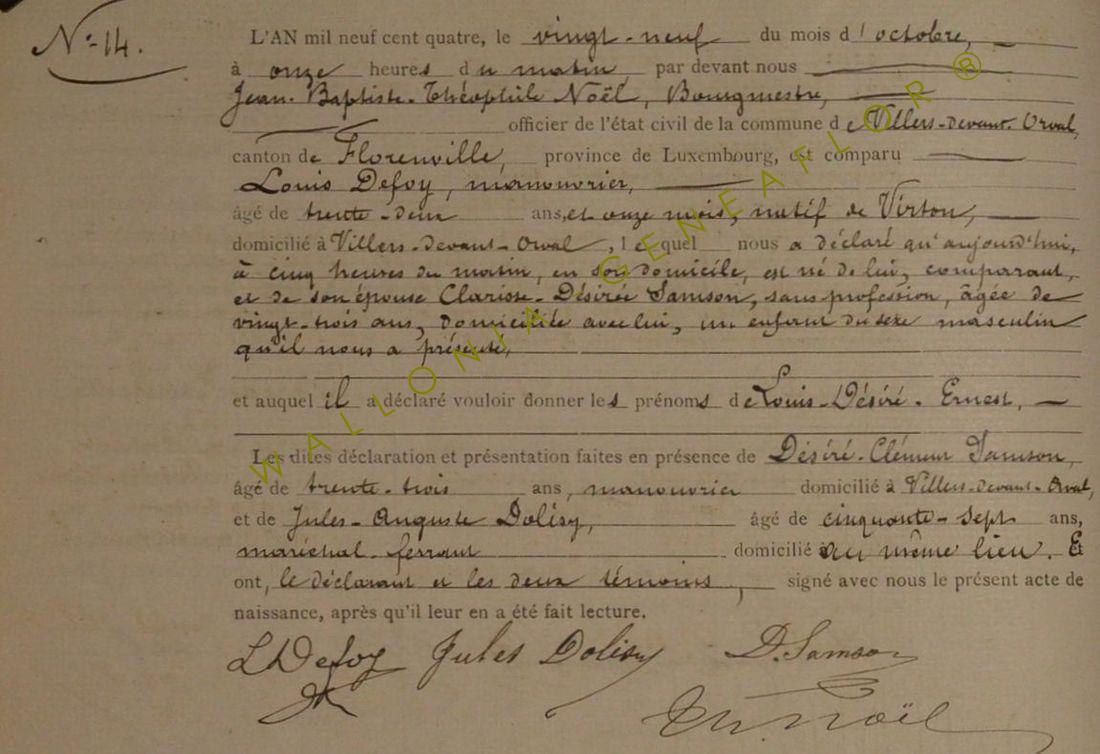 N.° 14.
L'AN mil neuf cent quatre, le vingt-neuf du mois d'octobre,
à onze heures du matin, par devant nous
Jean-Baptiste-Théophile Noël, Bourgmestre,
officier de l'état civil de la commune de Villers-devant-Orval,
canton de Florenville, province de Luxembourg, est comparu
Louis Defoy, manouvrier,
âgé de trente-deux ans, et onze mois, natif de Virton,
domicilié à Villers-devant-Orval, lequel nous a déclaré qu'aujourd'hui,
à cinq heures du matin, en son domicile, est né de lui, comparant,
et de son épouse Clarisse-Désirée Samson, sans profession, âgée de
vingt-trois ans, domiciliée avec lui, un enfant du sexe masculin
qu'il nous a présenté,
et auquel il a déclaré vouloir donner les prénoms de Louis-Désiré-Ernest,
Les dites déclaration et présentation faites en présence de Désiré-Clément Samson,
âgé de trente-trois ans, manouvrier domicilié à Villers-devant-Orval,
et de Jules-Auguste Dolisy, âgé de cinquante-sept ans,
maréchal-ferrant domicilié au même lieu. Et
ont, le déclarant et les deux témoins, signé avec nous le présent acte de
naissance, après qu'il leur en a été fait lecture.
L Defoy Jules Dolisy D. Samson
Th. Noël
WALLONIA GENEAFLOR ®